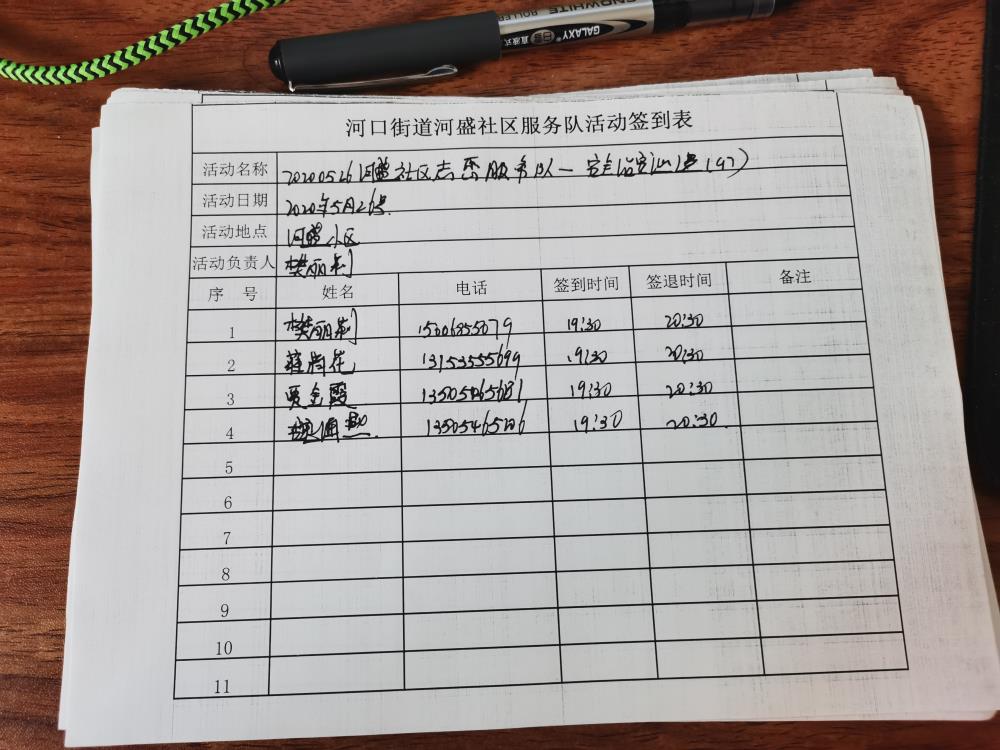 SNOWWHITE ROLLER
GALAXY® 直液式
河口街道河盛社区服务队活动签到表
活动名称 20200526河盛社区志愿服务队一
活动日期 2020年5月26号.
活动地点 河盛小区
活动负责人 樊丽利
序 号 姓名 电话 签到时间 签退时间 备注
1 樊丽利 19:30 20:30
2 13153555699 19:30 20:30
3 贾金霞 13505465681 19:30 20:30
4 19:30 20:30.
5
6
7
8
9
10
11